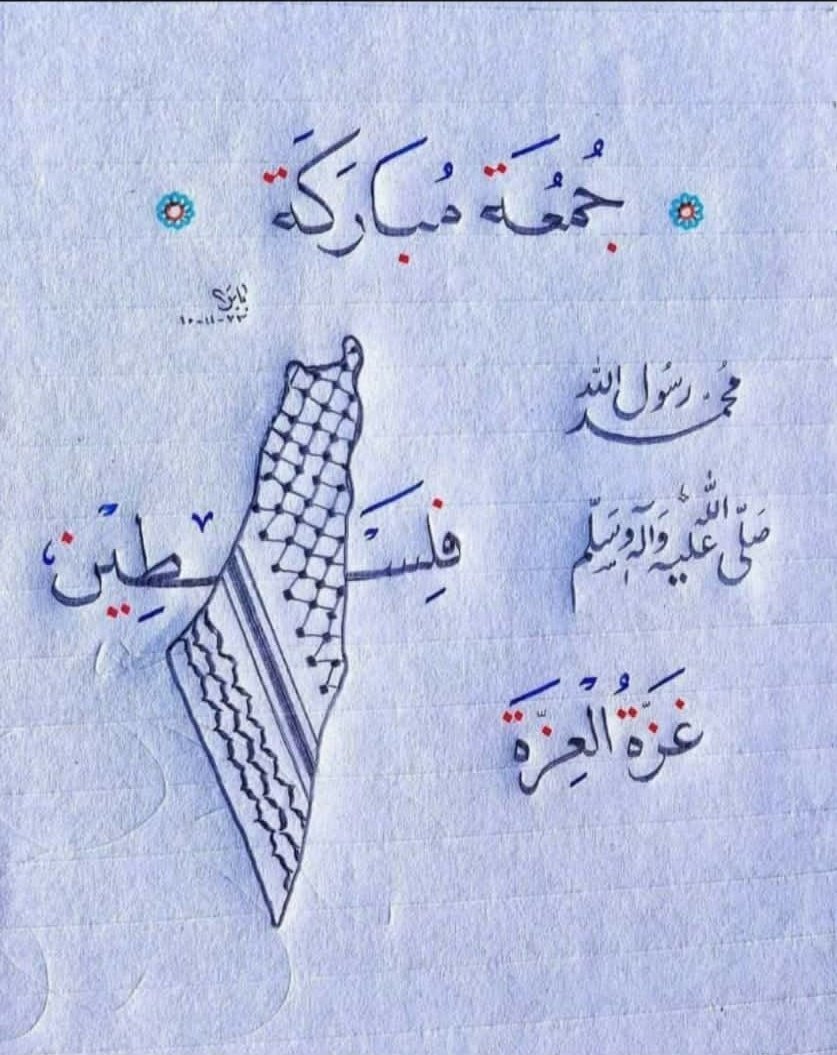 جُمُعَة مُبارَكَة
١٠-١١-٢٣
مُحمّد رسُول الله
صَلّى الله عليه وَآلهِ وَسَلّم
فِلَسْطِيْن
غَزَّةُ الْعِزَّة